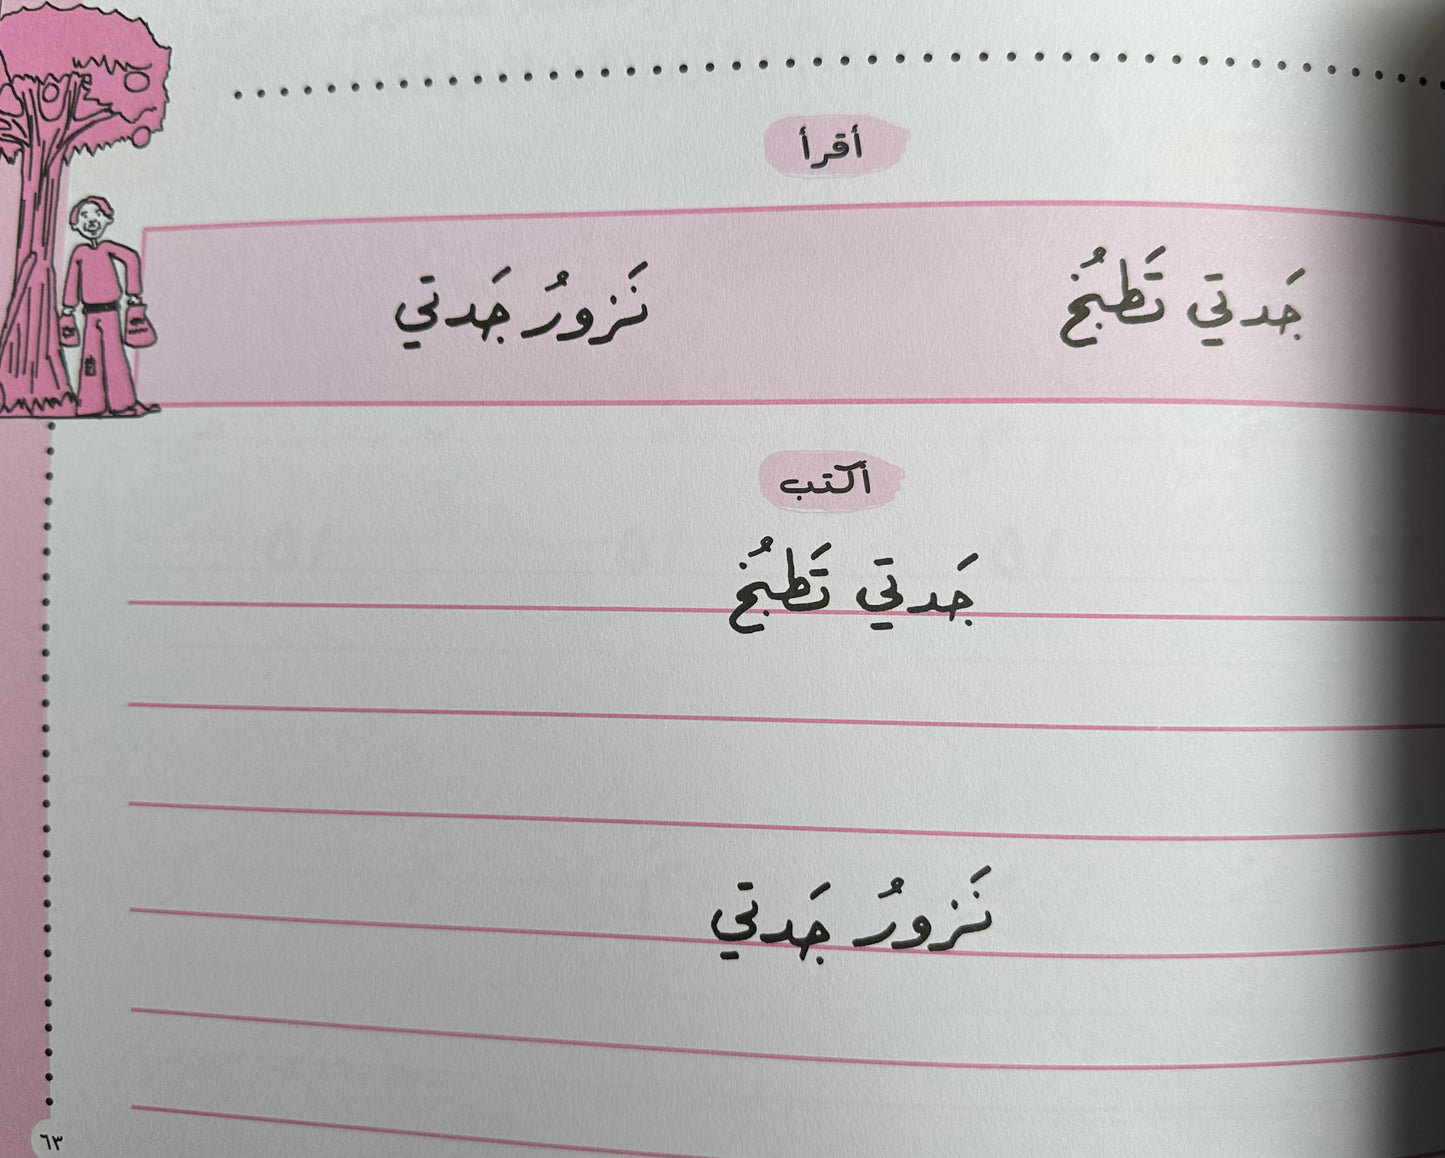 أقرأ
جَدتي تَطبُخ نَزورُ جَدتي
أكتب
جَدتي تَطبُخ
نَزورُ جَدتي
٦٣